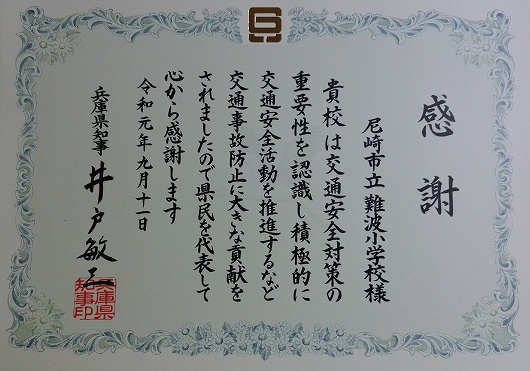 感謝
尼崎市立 難波小学校様
貴校は交通安全対策の
重要性を認識し積極的に
交通安全活動を推進するなど
交通事故防止に大きな貢献を
されましたので県民を代表して
心から感謝します
令和元年九月十一日
兵庫県知事 井戸敏三
兵庫県
知事印